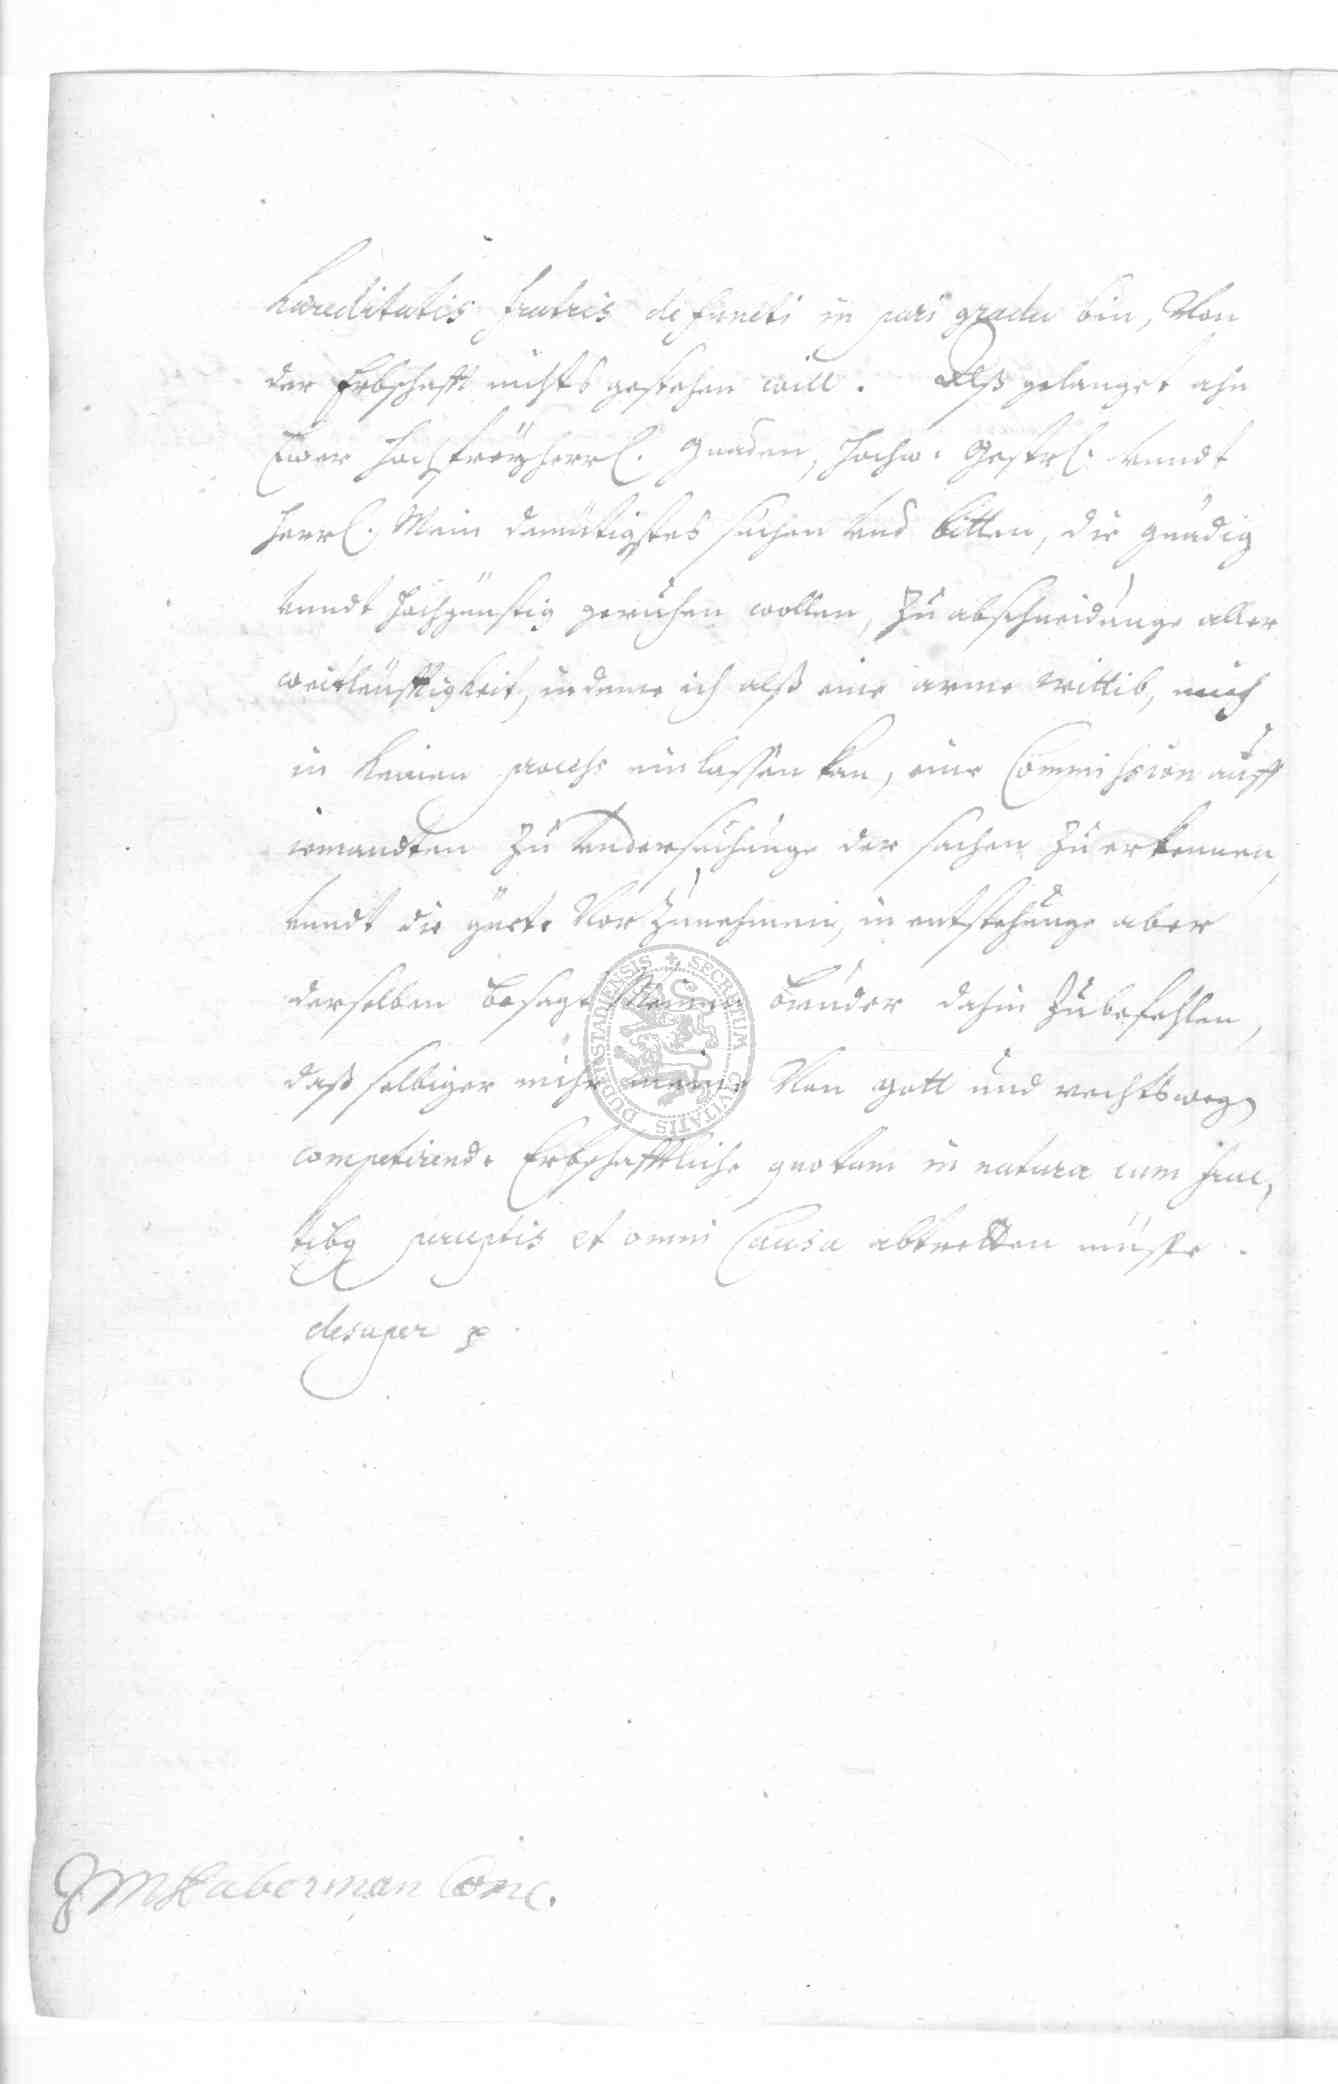 haereditatis fratris defuncti in pari gradu bin, Von
der Erbschafft nichts gestehen will. Alß gelanget ahn
Ewer Hochfreÿherrl. Gnaden, Hochw. Gestrl. vundt
Herrl. Mein demütigstes suchen vnd bitten, die gnädig
vundt hochgünstig geruhen wollen, zu abschneidunge aller
weitleüfftigkeit, indeme ich alß eine arme wittib, mich
in keinen process einlassen kan, eine Commission auff
iemandten zu vndersuchunge der sachen zu erkennen,
vundt die güete Vorzunehmen, in entstehunge aber
derselben besagt Meinen bruder dahin zubefehlen,
daß selbiger mihr meine Von gott und rechtsweg
competirende Erbschafftliche quotam in natura cum fruc,
tibq perceptis et omni Causa abtretten müsse.
desuper p
JMHaberman Conc.
SECRETUM CIVITATIS DUDERSTADIENSIS